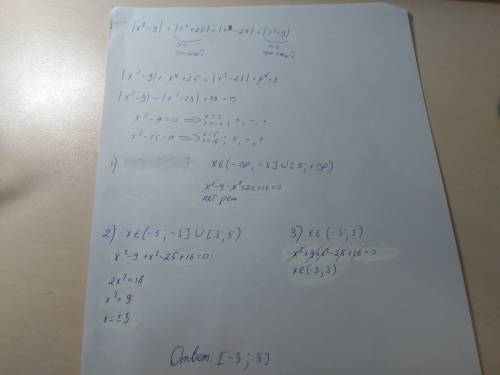 |x²-9| + |x⁴+25| = |x²-25| + |x⁴+9|
|x²-9| + x⁴+25 = |x²-25| + x⁴+9
|x²-9| - |x²-25| + 16 = 0
x²-9=0 ⇒ x=3 x=-3 ; +, -, +
x²-25=0 ⇒ x=5 x=-5 ; +, -, +
1) x∈(-∞; -5] ∪ [5; +∞)
x²-9-x²+25+16=0
нет реш
2) x∈(-5; -3] ∪ [3; 5)
x²-9+x²-25+16=0
2x²=18
x²=9
x=±3
3) x∈(-3; 3)
-x²+9+x²-25+16=0
x∈(-3; 3)
Ответ: [-3; 3]